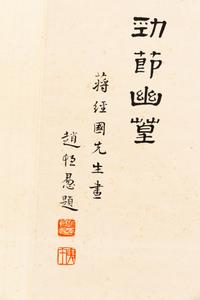 勁節幽篁
蔣經國先生畫
趙恒惪題